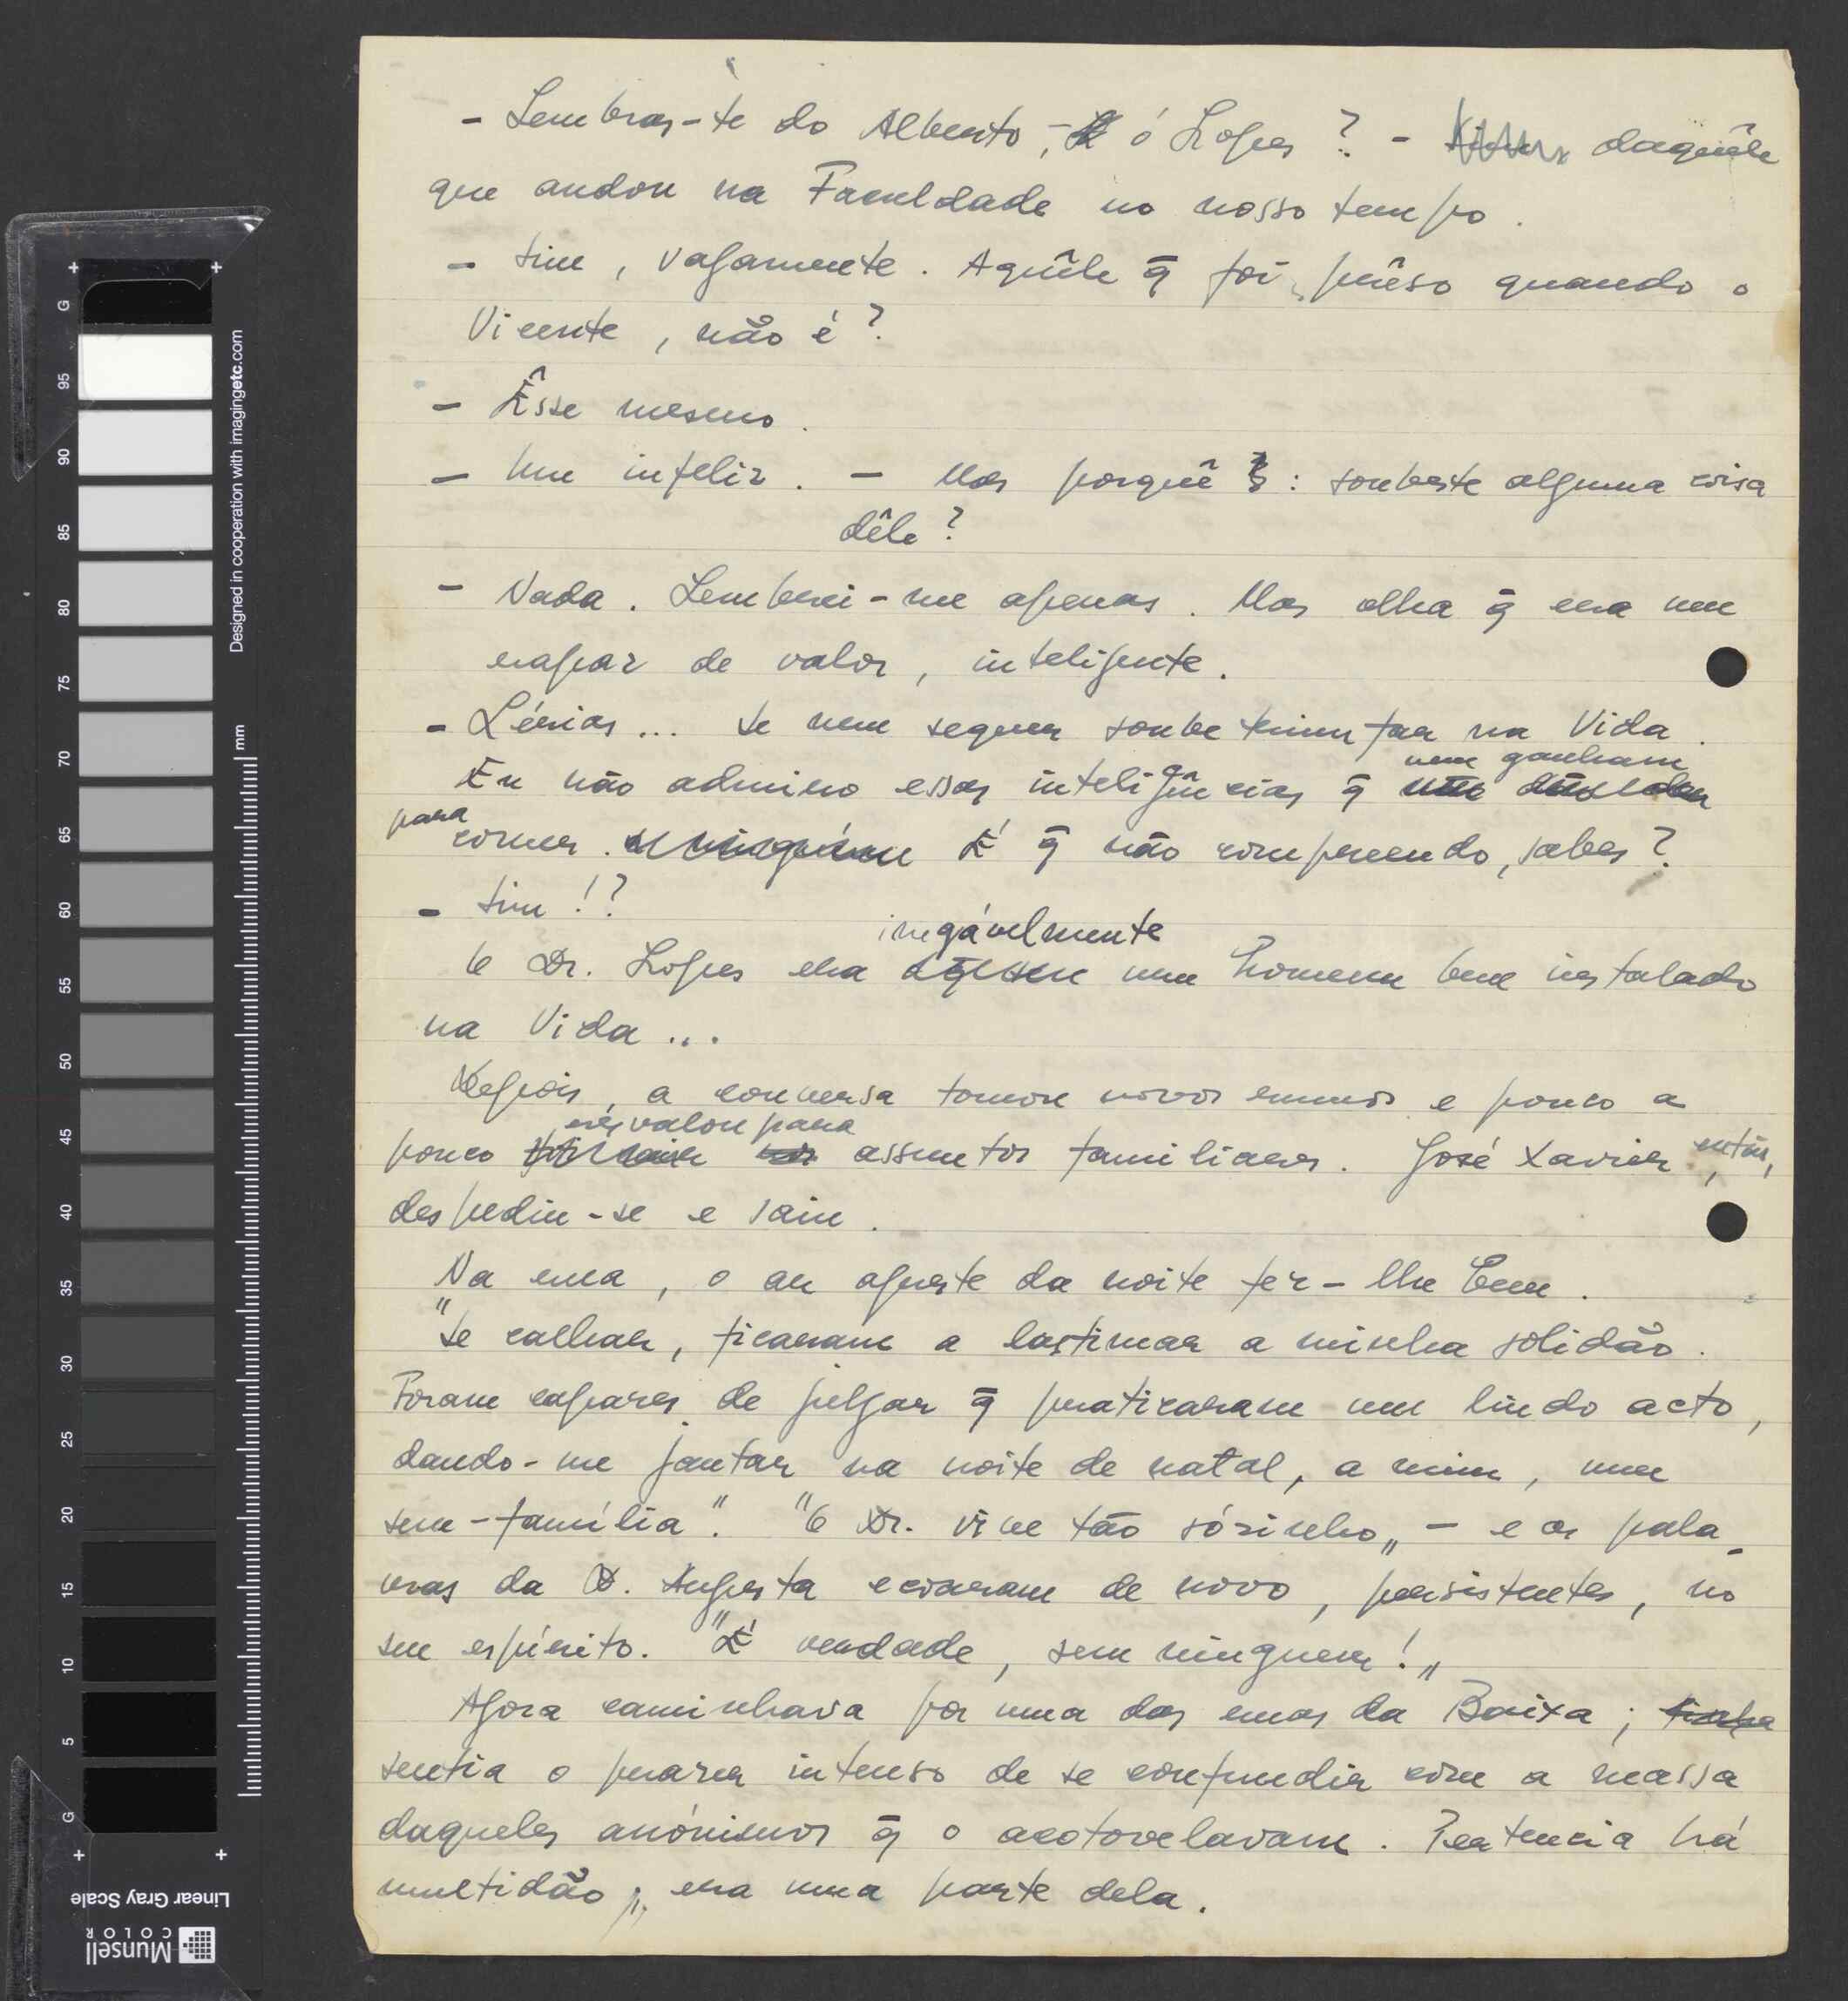 - Lembras-te do Alberto, ó Lopes? - daquêle
que andou na Faculdade no nosso tempo.
- Sim, vagamente. Aquêle q̄ foi prêso quando o
Vicente, não é?
- Êsse mesmo.
- Um infeliz. - Mas porquê: soubeste alguma coisa
dêle?
- Nada. Lembrei-me apenas. Mas olha q̄ era um
rapaz de valor, inteligente.
- Lérias... Se nem sequer soube triunfar na Vida.
nem ganham
Eu não admiro essas inteligências q̄
para
comer. É q̄ não compreendo, sabes?
- Sim!?
inegávelmente
O Dr. Lopes era um homem bem instalado
na Vida...
Depois, a conversa tomou novos rumos e pouco a
resvalou para
pouco assuntos familiares. José Xavier, então,
despediu-se e saiu.
Na rua, o ar agreste da noite fêz-lhe bem.
"Se calhar, ficaram a lastimar a minha solidão.
Foram capazes de julgar q̄ praticaram um lindo acto,
dando-me jantar na noite de natal, a mim, um
sem-família". "O Dr. vive tão sózinho" - e as pala-
vras da D. Augusta ecoaram de novo, persistentes, no
seu espírito. "É verdade, sem ninguem!"
Agora caminhava por uma das ruas da Baixa;
sentia o prazer intenso de se confundir com a massa
daqueles anónimos q̄ o acotovelavam. Pertencia há
multidão; era uma parte dela.
Designed in cooperation with imagingetc.com
mm
G
95
90
85
80
75
70
65
60
55
50
45
40
35
30
25
20
15
10
5
G
Linear Gray Scale
Munsell
COLOR